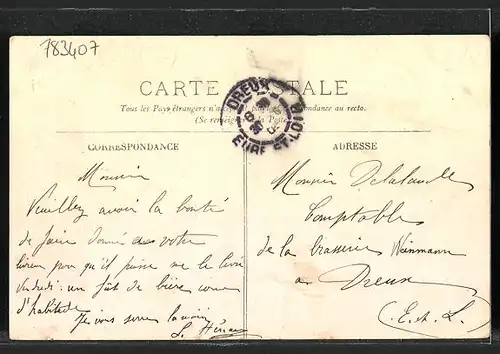 783407
CARTE POSTALE
Tous les Pays étrangers n'acceptent pas la correspondance au recto.
(Se renseigner à la Poste)
DREUX
EURE-ET-LOIR
CORRESPONDANCE
Monsieur
Veuillez avoir la bonté
de faire donné votre
pour qu'il puisse me le livré
Vendredi: un fût de bière comme
d'habitude
Je vous serre la main
ADRESSE
Monsieur Delalande
Comptable
de la brasserie Weinmann
a Dreux
(E. et. L.)